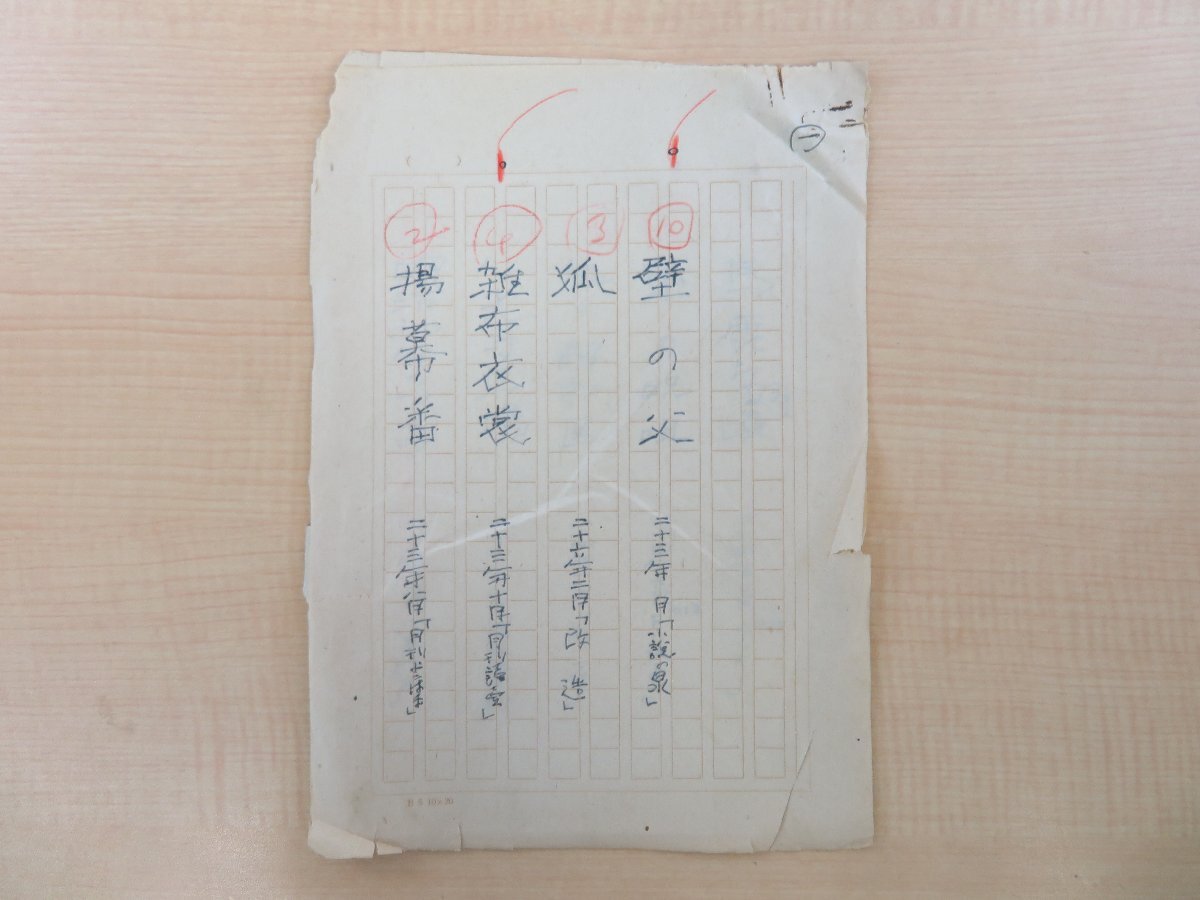 ㊀
⑩
壁の父 二十三年 月「小説の泉」
③
狐 二十六年二月「改造」
④
雑布衣裳 二十三年十月「月刊読売」
②
揚幕番 二十三年八月「月刊
B5 10×20